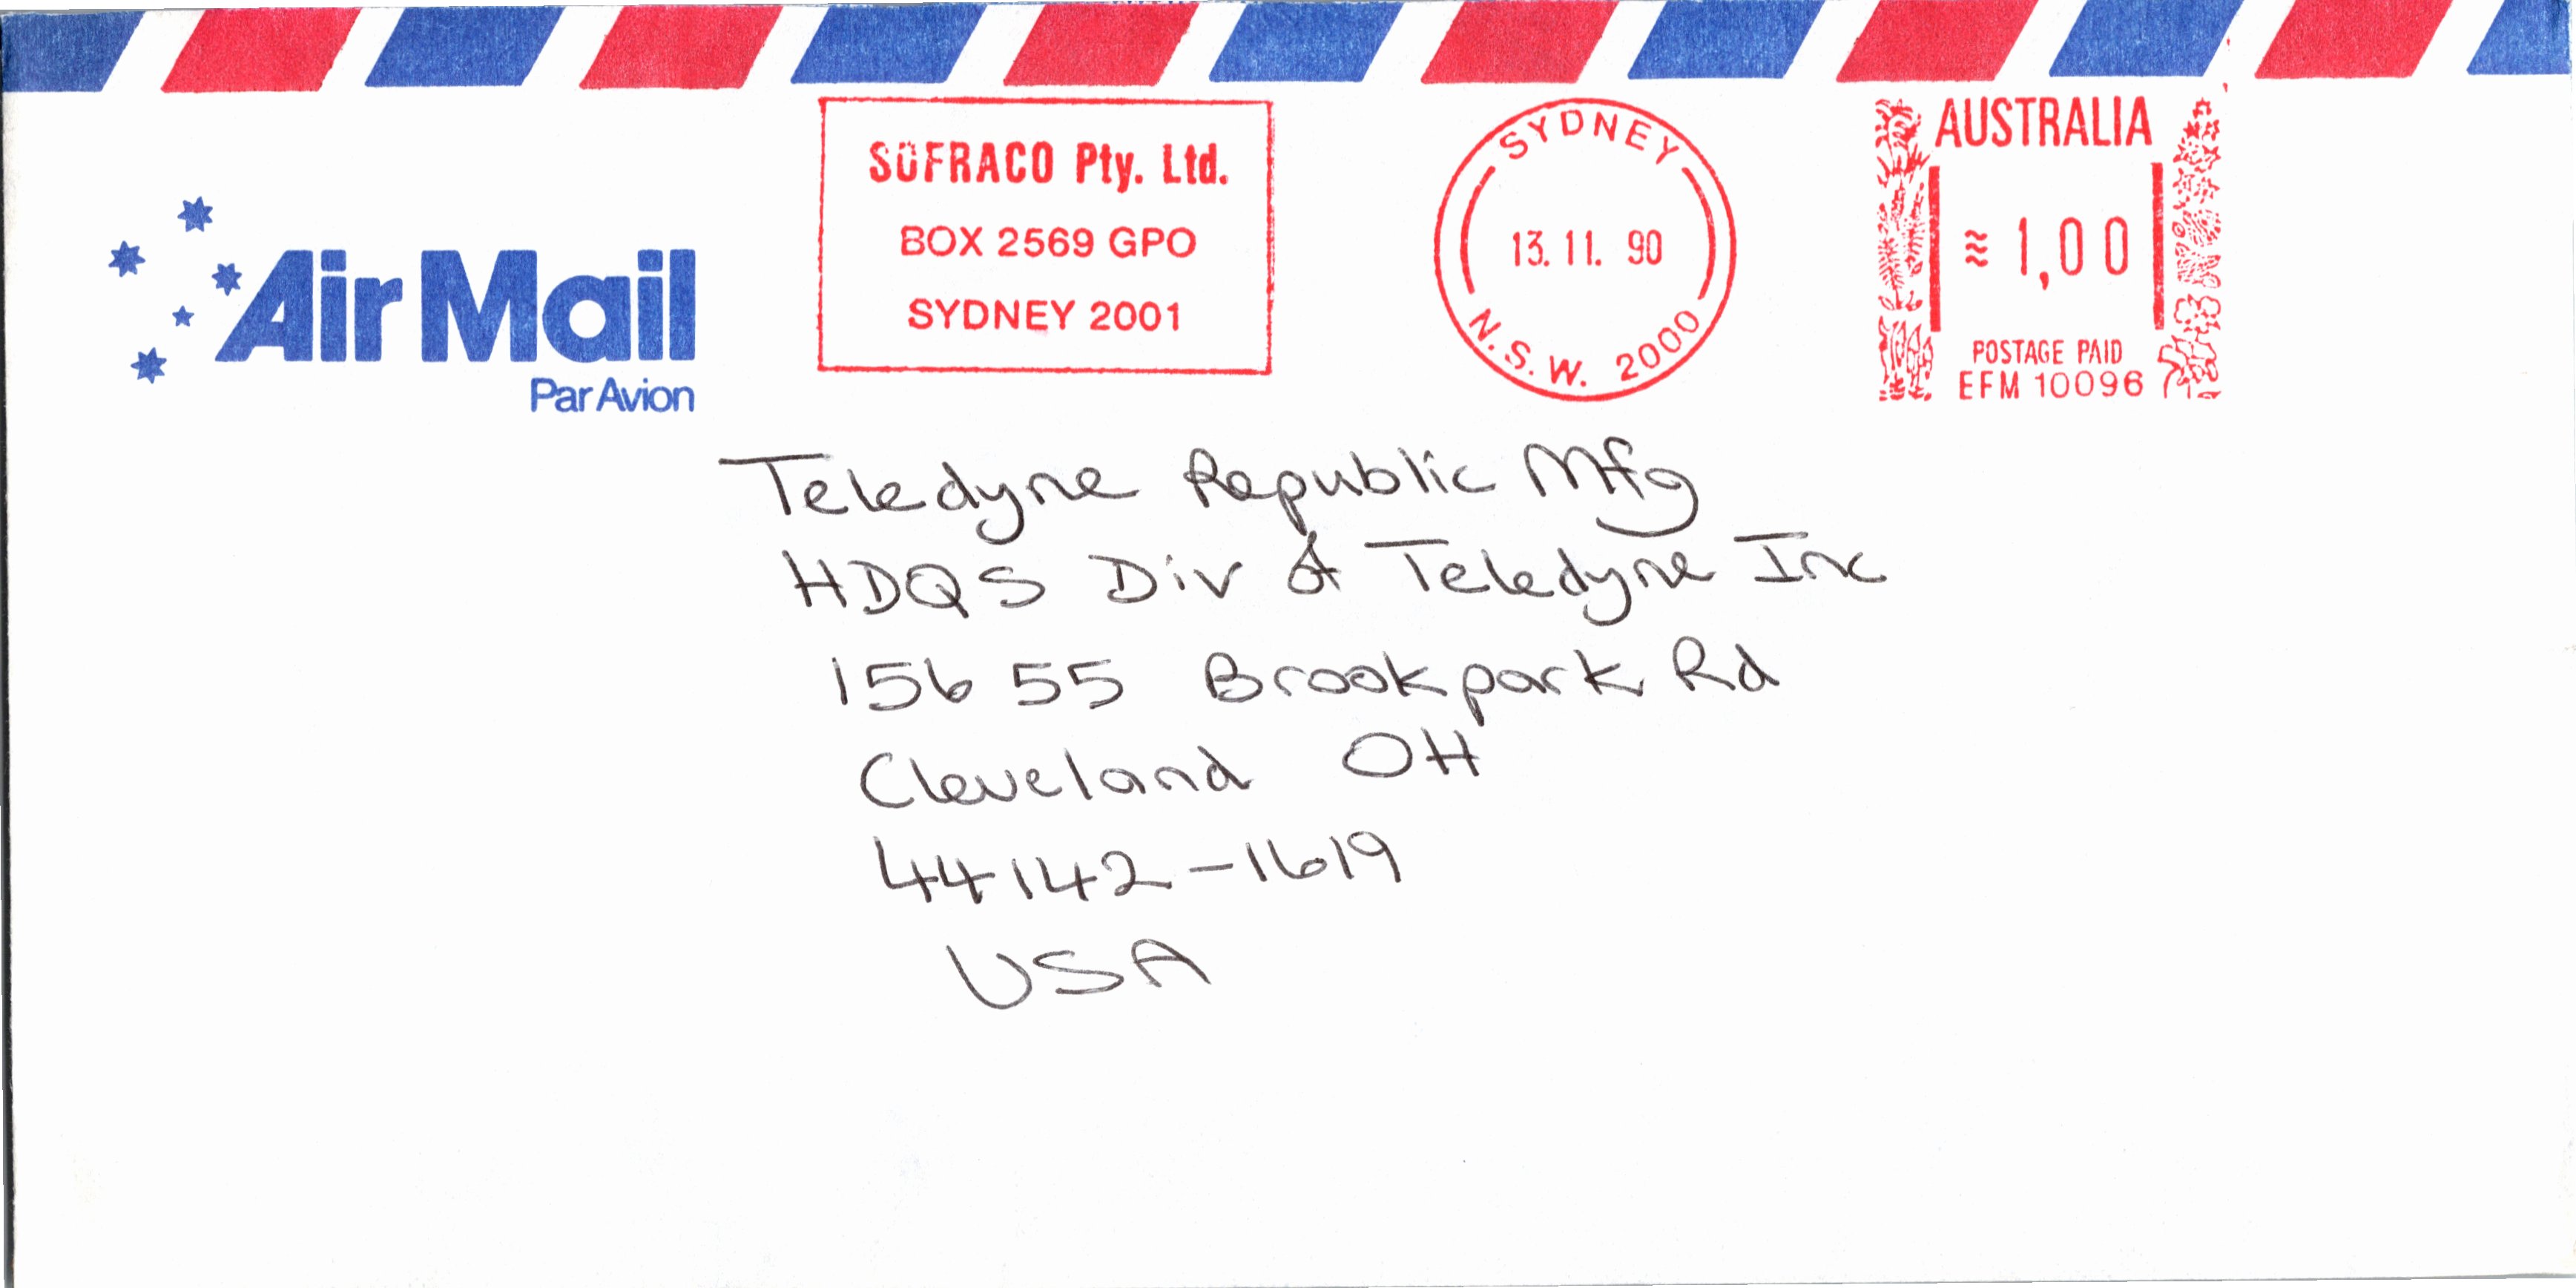 Air Mail
Par Avion
SOFRACO Pty. Ltd.
BOX 2569 GPO
SYDNEY 2001
SYDNEY
13.11.90
N.S.W. 2000
AUSTRALIA
≋ 1,00
POSTAGE PAID
EFM 10096
Teledyne Republic Mfg
HDQS Div of Teledyne Inc
15655 Brookpark Rd
Cleveland OH
44142-1619
USA